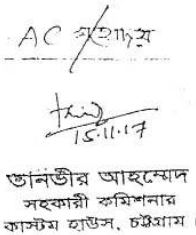 AC মহোদয়
15.11.17
তানভীর আহম্মেদ
সহকারী কমিশনার
কাস্টম হাউস, চট্টগ্রাম।